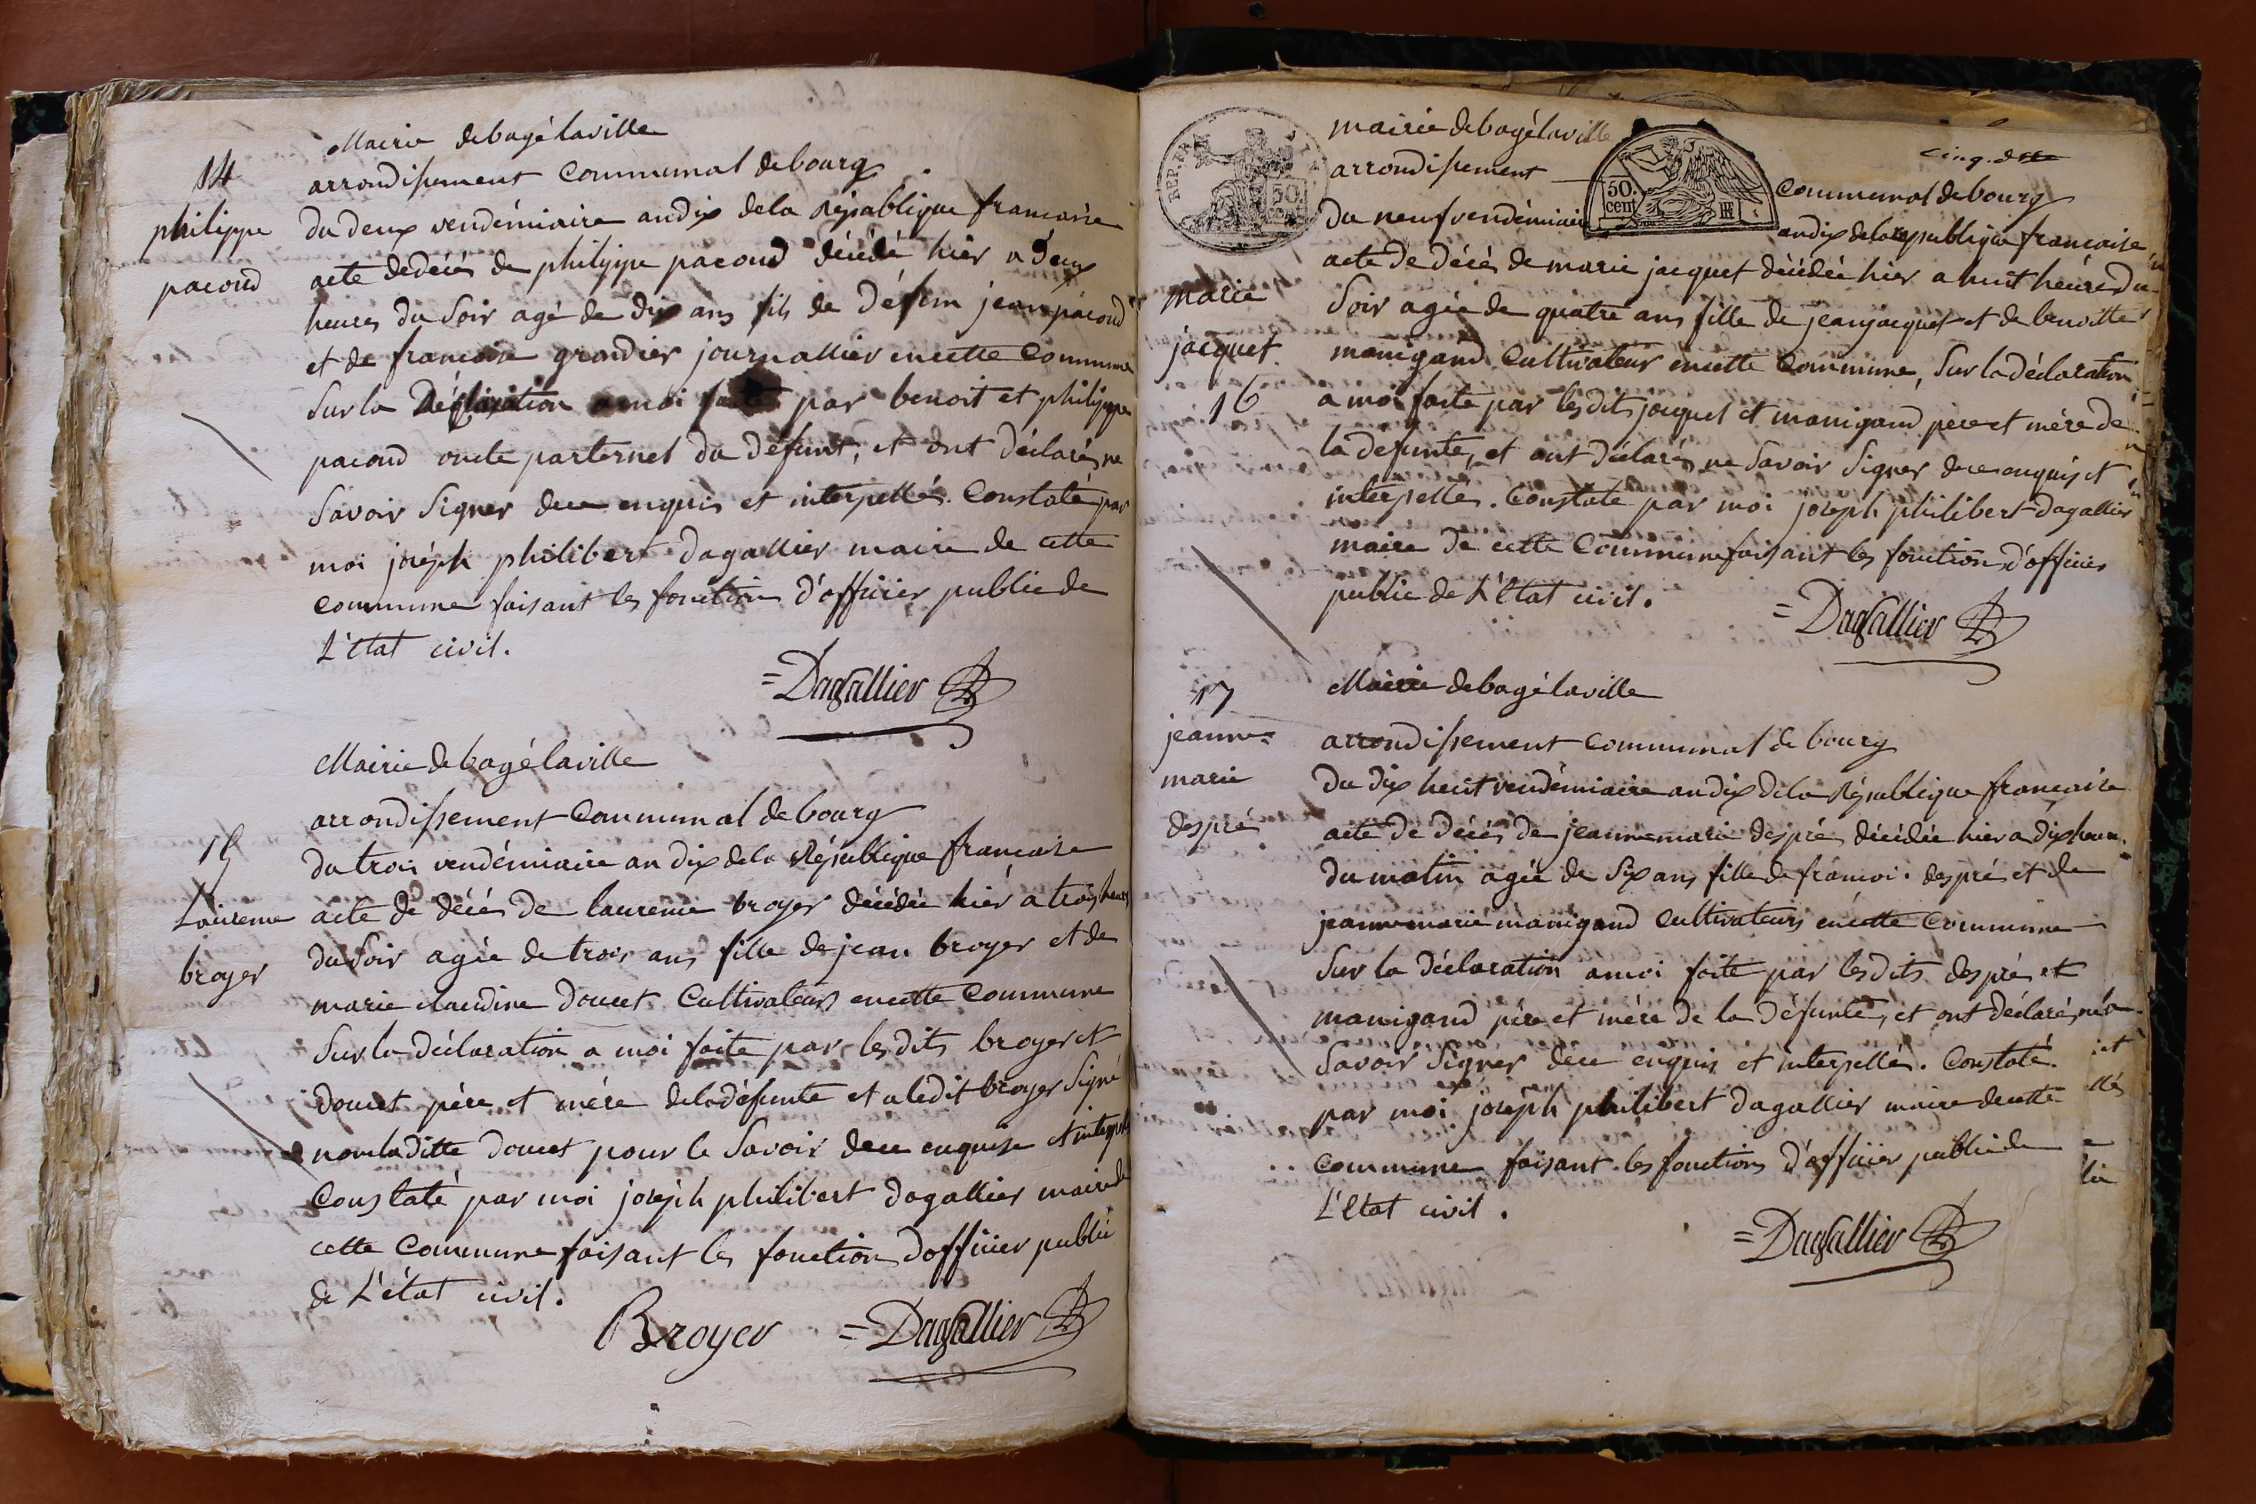 Mairie de bagé laville
14
arrondissement Communal de bourg
philippe
pacoud
du deux vendémiaire an dix de la République francaise
acte de décés de philippe pacoud décédé hier a deux
heures du Soir agé de dix ans fils de défun jean pacoud
et de francoise grandier journallier en cette Commune
Sur la Déclaration a moi faite par benoit et philippe
pacoud oncle parternel du défunt, et ont déclarés ne
Savoir Signer de ce enquis et interpellés. Constaté par
moi joséph philibert dagallier maire de cette
Commune faisant les fonction d'officier public de
L'état civil.
=Dagallier
Mairie de bagé laville
arrondissement Communal de bourg
15
Laurence
broyer
du trois vendémiaire an dix de la République francaise
acte de décés de laurence broyer décédée hiér a trois heures
du Soir agée de trois ans fille de jean broyer et de
marie claudine doucet Cultivateurs en cette Commune
Sur la déclaration a moi faite par les dits broyer et
doucet pére et mére de la défunte et a ledit broyer Signé
non la ditte doucet pour le Savoir de ce enquise et interpellé
Constaté par moi joséph philibert dagallier maire de
cette Commune faisant les fonction d'officier public
de L'état civil.
Broyer =Dagallier
REP. FRA
50
50. cent
cinq. d
mairie de bagé laville
arrondissement
Communal de bourg
du neuf vendémiaire
an dix de la republique francaise
marie
jacquet
16
acte de décés de marie jacquet décédée hier a huit heures du
Soir agée de quatre ans fille de jean jacquet et de benoitte
manigand Cultivateur en cette Commune, Sur la déclaration
a moi faite par lesdits jacquet et manigand pere et mére de
la defunte, et ont déclarés ne Savoir Signer de ce enquis et
interpellés. Constaté par moi joséph philibert dagallier
maire de cette Commune faisant les fonction d'officier
public de L'état civil.
=Dagallier
Mairie de bagé laville
17
jeanne=
marie
despré
arrondissement Communal de bourg
du dix huit vendémiaire an dix de la République francaise
acte de décés de jeanne marie despré décédée hier a dix heur.
du matin agée de Six ans fille de francoi. despré et de
jeanne marie manigand Cultivateurs en cette Commune
Sur la déclaration a moi faite par lesdits despré et
manigand pére et mére de la défunte, et ont déclarés ne le
Savoir Signer de ce enquis et interpellés. Constaté
par moi joséph philibert dagallier maire de cette
Commune faisant les fonctions d'officier public de
L'état civil.
=Dagallier